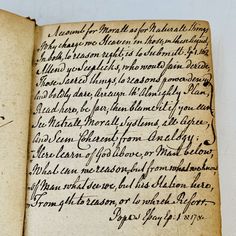 Account for Morall as for Naturall things
Why charge we Heaven in those, in these Acquit
In both, to reason right; is to Submit. Ep: 1.
Attend you Scepticks, who would fain deride
Those Sacred things, to reasons
And boldly dare, Arraign th' Almighty Plan,
Read here, be fair; then blame it if you can
See Natrall, Morall Systems all agree,
And Seem Coherent from Analogy.
Here learn of God above, or Man below,
What can we reason, but from what we know
of Man what see we, but his Station here,
From wch to reason, or to which Refer.
Popes Essay Ep: 1